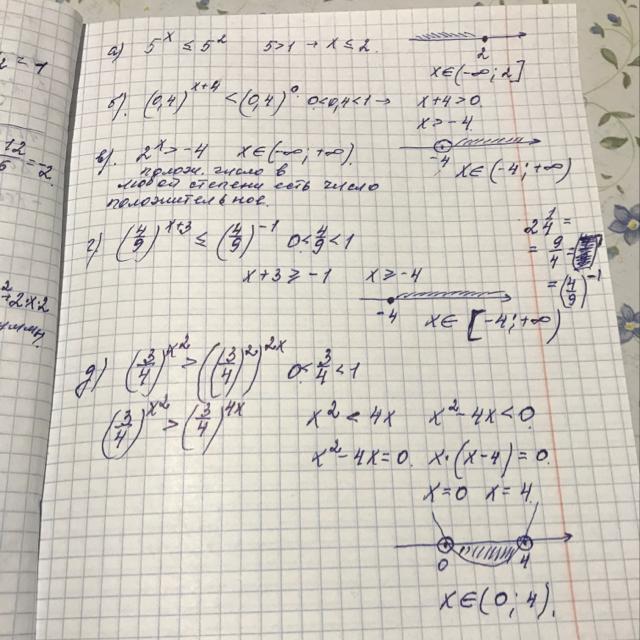 а) 5^x ≤ 5^2 5>1 → x ≤ 2.
2
x∈(-∞; 2]
б). (0,4)^(x+4) < (0,4)^0. 0<0,4<1 → x+4>0.
x>-4.
-4
x∈(-4; +∞)
в). 2^x > -4 x∈(-∞; +∞).
полож. число в
любой степени есть число
положительное.
г) (4/9)^(x+3) ≤ (4/9)^(-1) 0<4/9<1
2 1/4 =
= 9/4 =
= (4/9)^(-1)
x+3 ≥ -1 x ≥ -4
-4
x∈ [-4; +∞)
д) (3/4)^(x^2) > ((3/4)^2)^(2x) 0<3/4<1
(3/4)^(x^2) > (3/4)^(4x) x^2 < 4x x^2-4x<0.
x^2-4x=0. x·(x-4)=0.
x=0 x=4.
0 4
x∈(0; 4).